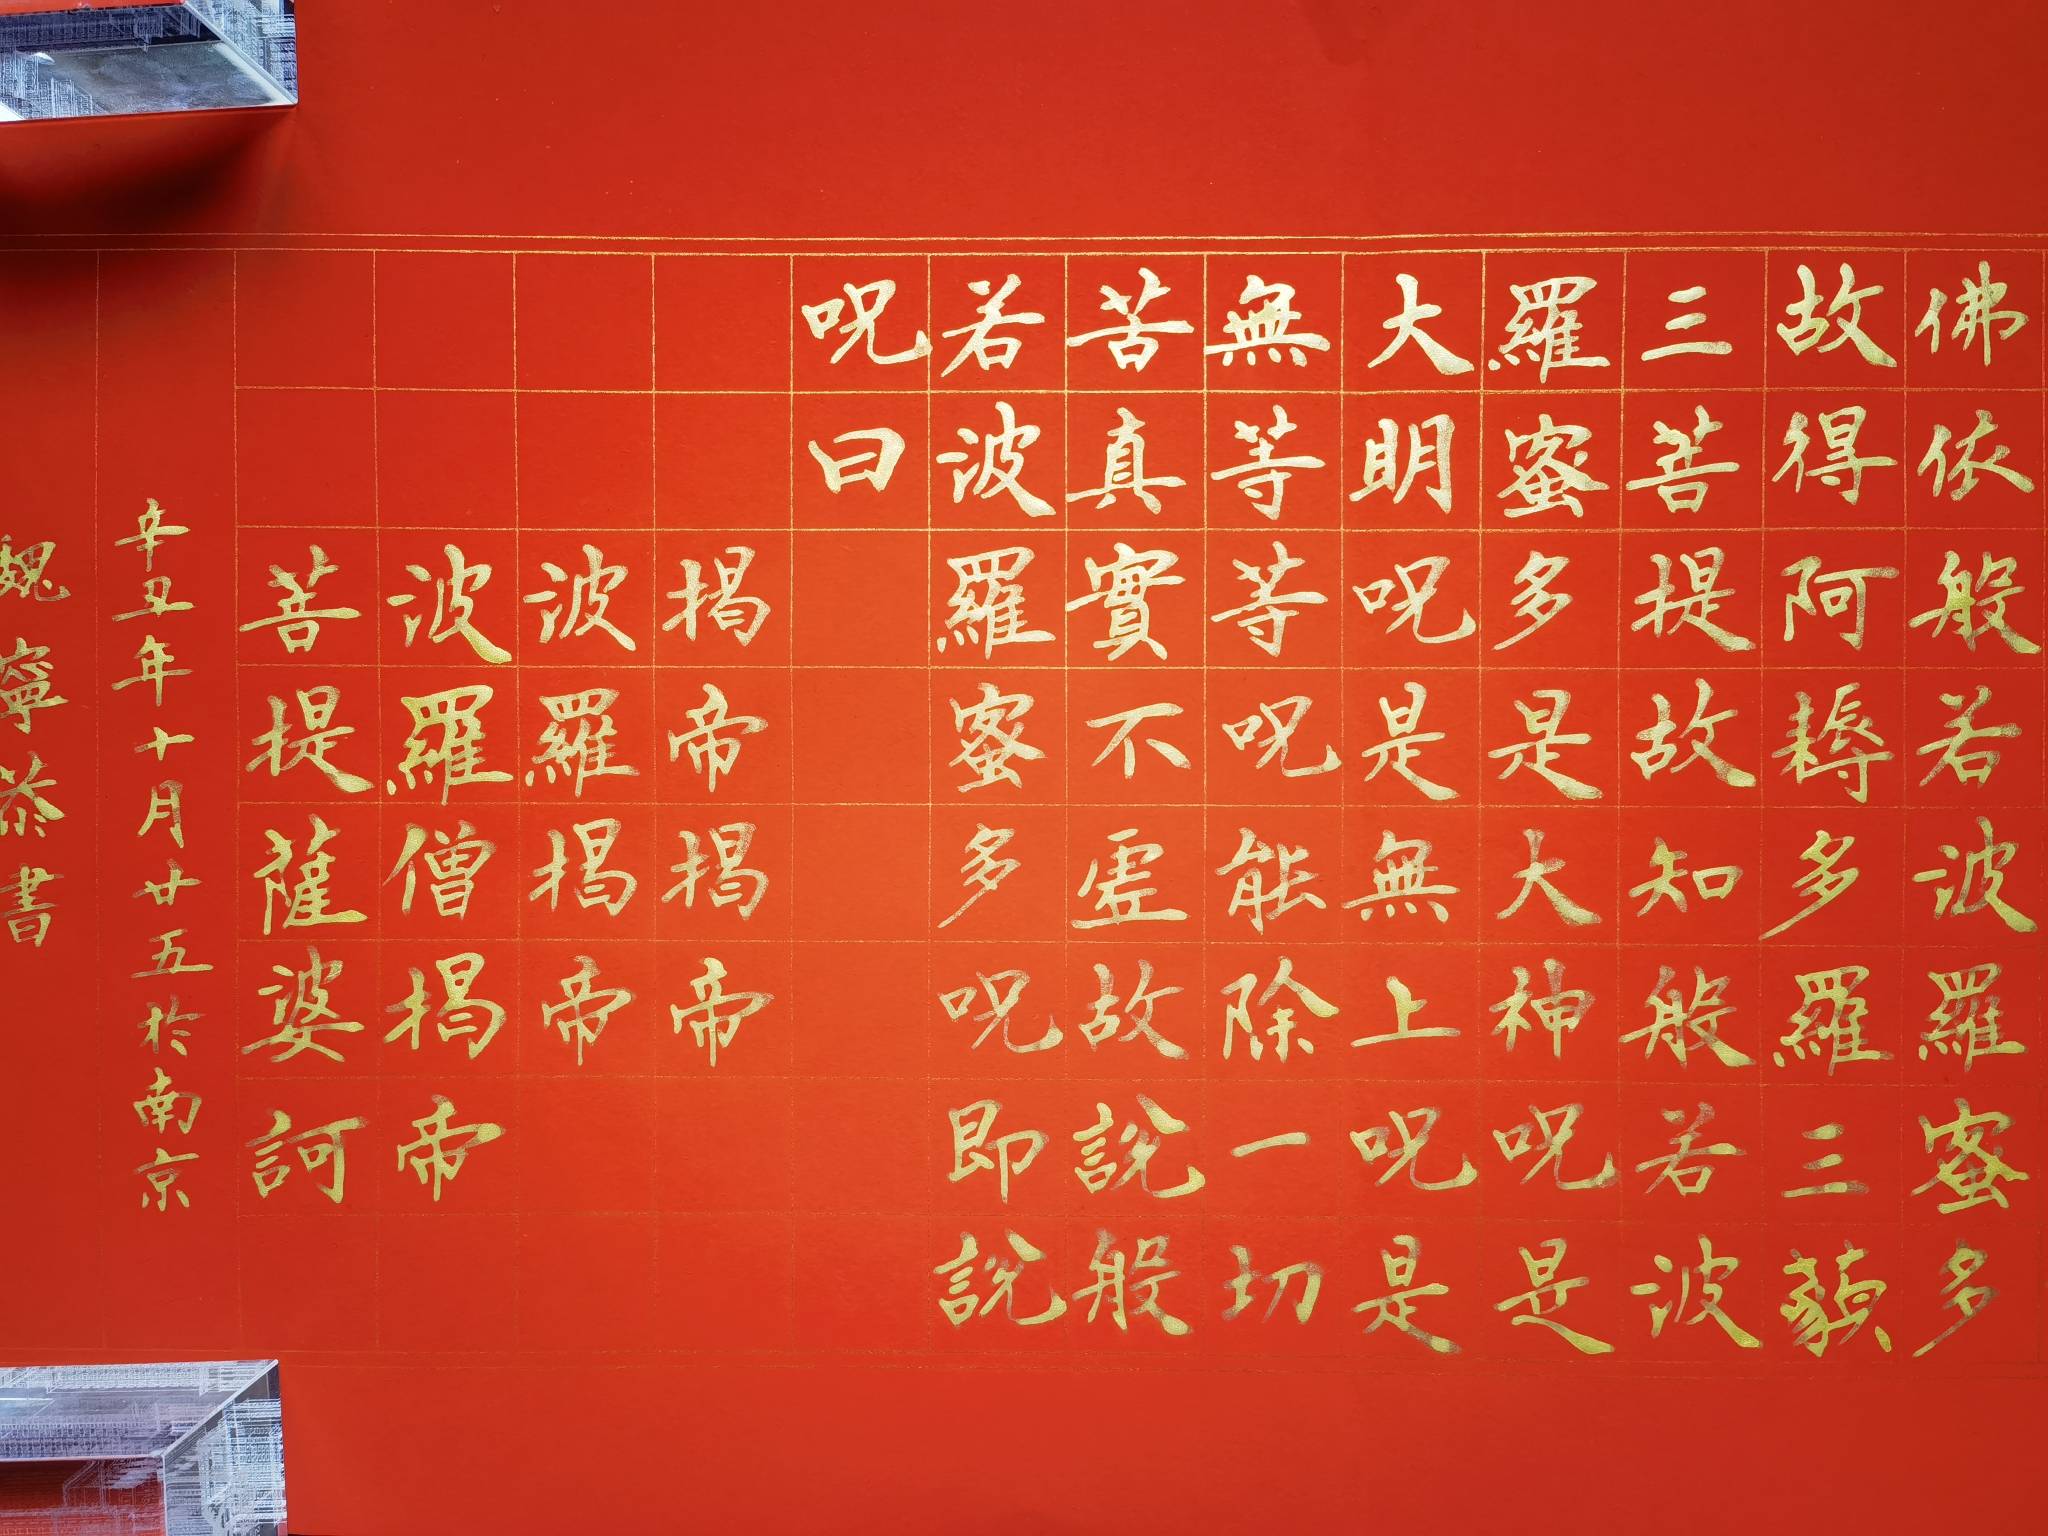 佛依般若波羅蜜多
故得阿耨多羅三藐
三菩提故知般若波
羅蜜多是大神呪是
大明呪是無上呪是
無等等呪能除一切
苦真實不虛故說般
若波羅蜜多呪即說
呪曰
揭帝揭帝
波羅揭帝
波羅僧揭帝
菩提薩婆訶
辛丑年十月廿五於南京
魏寧恭書